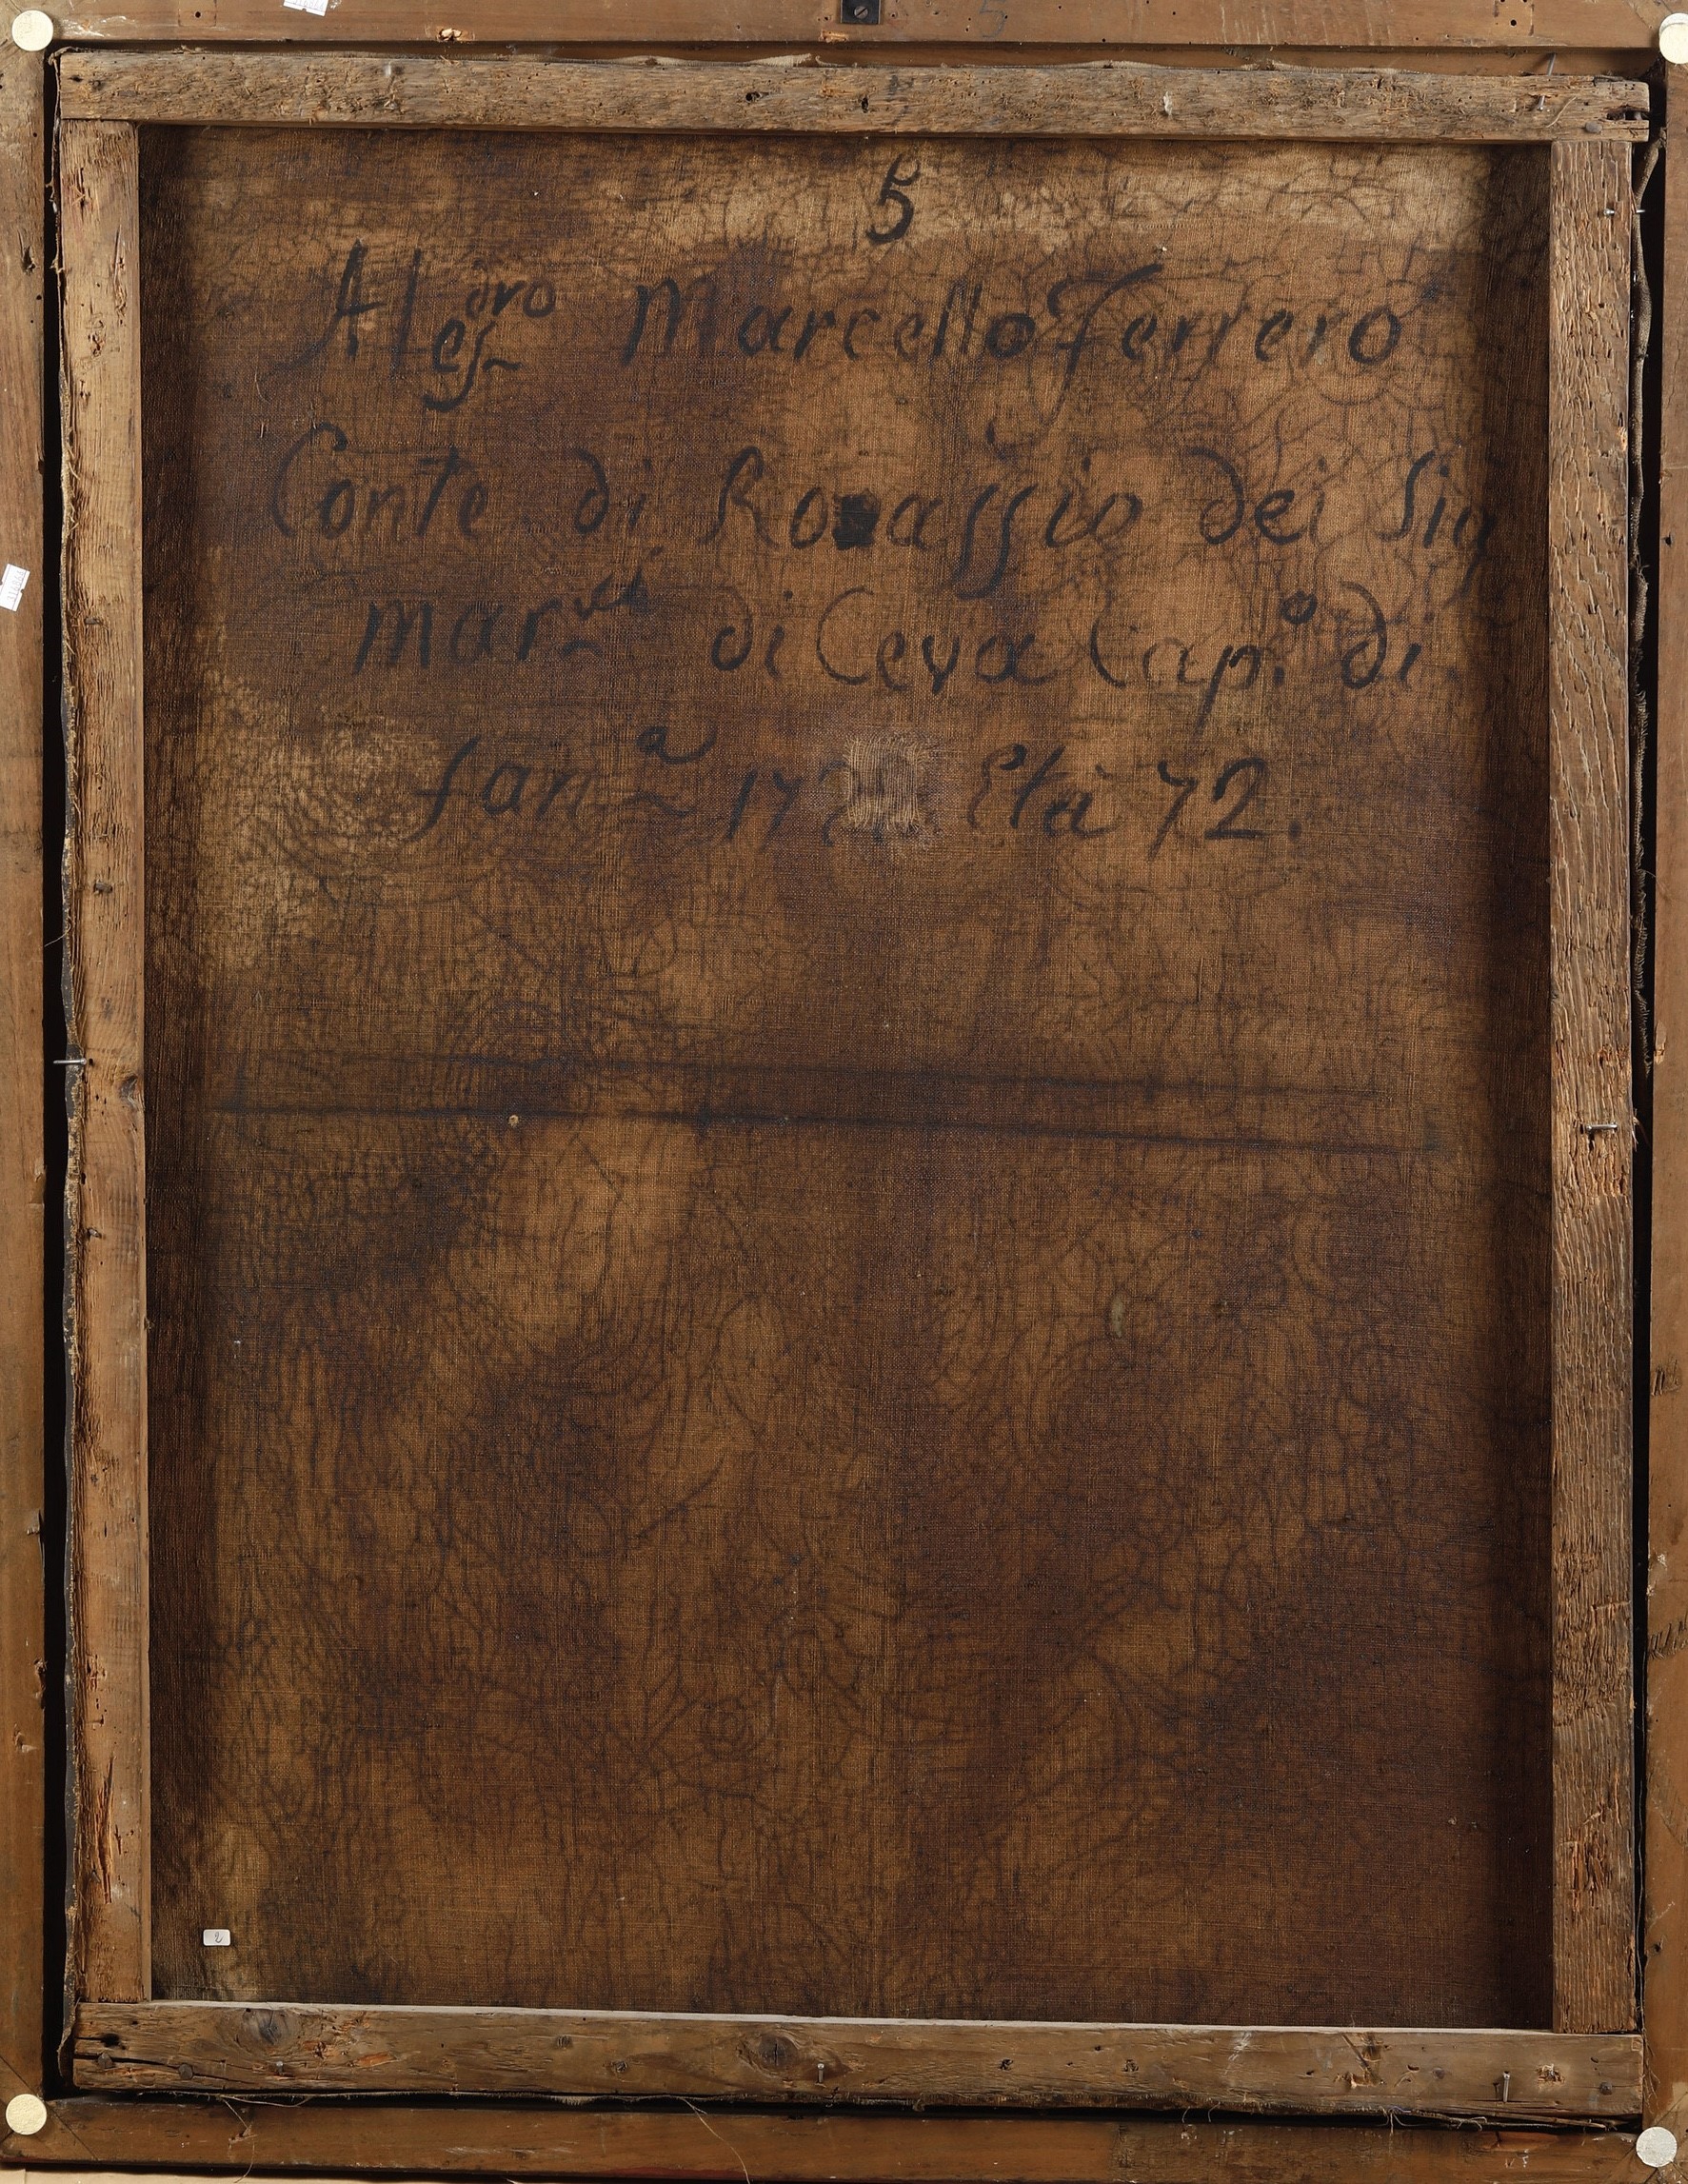 5
Alesdro Marcello Ferrero
Conte di Roassio dei Sig
marsi di Ceva Capo di
fana 17 Età 72.
2